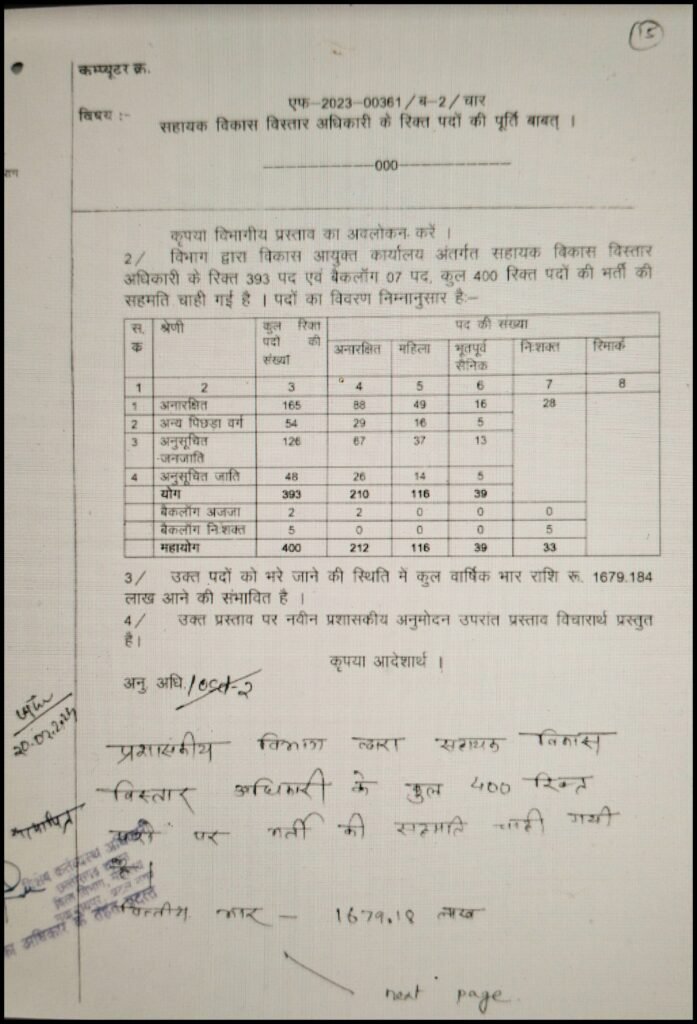 15
कम्प्यूटर क्र.
एफ-2023-00361/ब-2/चार
विषय :- सहायक विकास विस्तार अधिकारी के रिक्त पदों की पूर्ति बाबत् ।
000
कृपया विभागीय प्रस्ताव का अवलोकन करें ।
2/ विभाग द्वारा विकास आयुक्त कार्यालय अंतर्गत सहायक विकास विस्तार
अधिकारी के रिक्त 393 पद एवं बैकलॉग 07 पद, कुल 400 रिक्त पदों की भर्ती की
सहमति चाही गई है । पदों का विवरण निम्नानुसार है:-
स. क श्रेणी कुल रिक्त पदों की संख्या पद की संख्या
अनारक्षित महिला भूतपूर्व सैनिक निःशक्त रिमार्क
1 2 3 4 5 6 7 8
1 अनारक्षित 165 88 49 16 28
2 अन्य पिछड़ा वर्ग 54 29 16 5
3 अनुसूचित जनजाति 126 67 37 13
4 अनुसूचित जाति 48 26 14 5
योग 393 210 116 39
बैकलॉग अजजा 2 2 0 0 0
बैकलॉग निःशक्त 5 0 0 0 5
महायोग 400 212 116 39 33
3/ उक्त पदों को भरे जाने की स्थिति में कुल वार्षिक भार राशि रू. 1679.184
लाख आने की संभावित है ।
4/ उक्त प्रस्ताव पर नवीन प्रशासकीय अनुमोदन उपरांत प्रस्ताव विचारार्थ प्रस्तुत
है।
कृपया आदेशार्थ ।
अनु. अधि.
प्रशासकीय विभाग द्वारा सहायक विकास
विस्तार अधिकारी के कुल 400 रिक्त
पदों पर भर्ती की सहमति चाही गयी
है।
वित्तीय भार - 1679.18 लाख
next page.